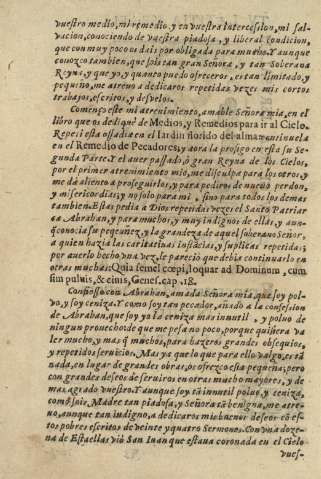 vuestro medio, mi remedio, y en vuestra intercession, mi sal-
vacion, conociendo de vuestra piadosa, y liberal condicion,
que con muy poco os dais por obligada para mucho. Y aunque
conozco tambien, que sois tan gran Señora, y tan Soberana
Reyna, y que yo, y quanto puedo ofreceros, es tan limitado, y
pequeño, me atrevo a dedicaros repetidas vezes mis cortos
trabajos, escritos, y desvelos.
Començè este mi atrevimiento, amable Señora mia, en el
libro que os dediquè de Medios, y Remedios para ir al Cielo.
Repeti esta ossadia en el Iardin florido del alma: continuela
en el Remedio de Pecadores; y aora la prosigo en esta su Se-
gunda Parte. Y el aver passado, ò gran Reyna de los Cielos,
por el primer atrevimiento mio, me disculpa para los otros, y
me dà aliento a proseguirlos, y para pediros de nuevo perdon,
y misericordias; y no solo para mi, sino para todos los demas
tambien. Estas pedia a Dios repetidas vezes el Santo Patriar-
ca Abrahan, y para muchos, y muy indignos de ellas, y aun-
q̃ conocia su pequeñez, y la grandeza de aquel soberano Señor,
a quien hazia las caritativas instãcias, y suplicas repetidas;
por averlo hecho una vez, le pareciò que debia continuarlo en
otras muchas: Quia semel cœpi, loquar ad Dominum, cum
sim pulvis, & cinis, Genes. cap. 18.
Confiesso con Abrahan, amada Señora mia, que soy pol-
vo, y soy ceniza. Y como soy tan pecador, añado a la confession
de Abrahan, que soy yo la ceniza mas inutil, y polvo de
ningun provecho: de que me pesa no poco, porque quisiera va
ler mucho, y mas q̃ muchos, para hazeros grandes obsequios,
y repetidos servicios. Mas ya que lo que para ello valgo, es tã
nada, en lugar de grandes obras, os ofrezco esta pequeña; pero
con grandes deseos de serviros en otras mucho mayores, y de
mas agrado vuestro. Y aunque soy tã inutil polvo, y ceniza,
como sois, Madre tan piadosa, y Señora tã benigna, me atre-
vo, aunque tan indigno, a dedicaros mis buenos deseos en es-
tos pobres escritos de veinte y quatro Sermones. Con una doze-
na de Estrellas viò San Iuan que estava coronada en el Cielo
vues-